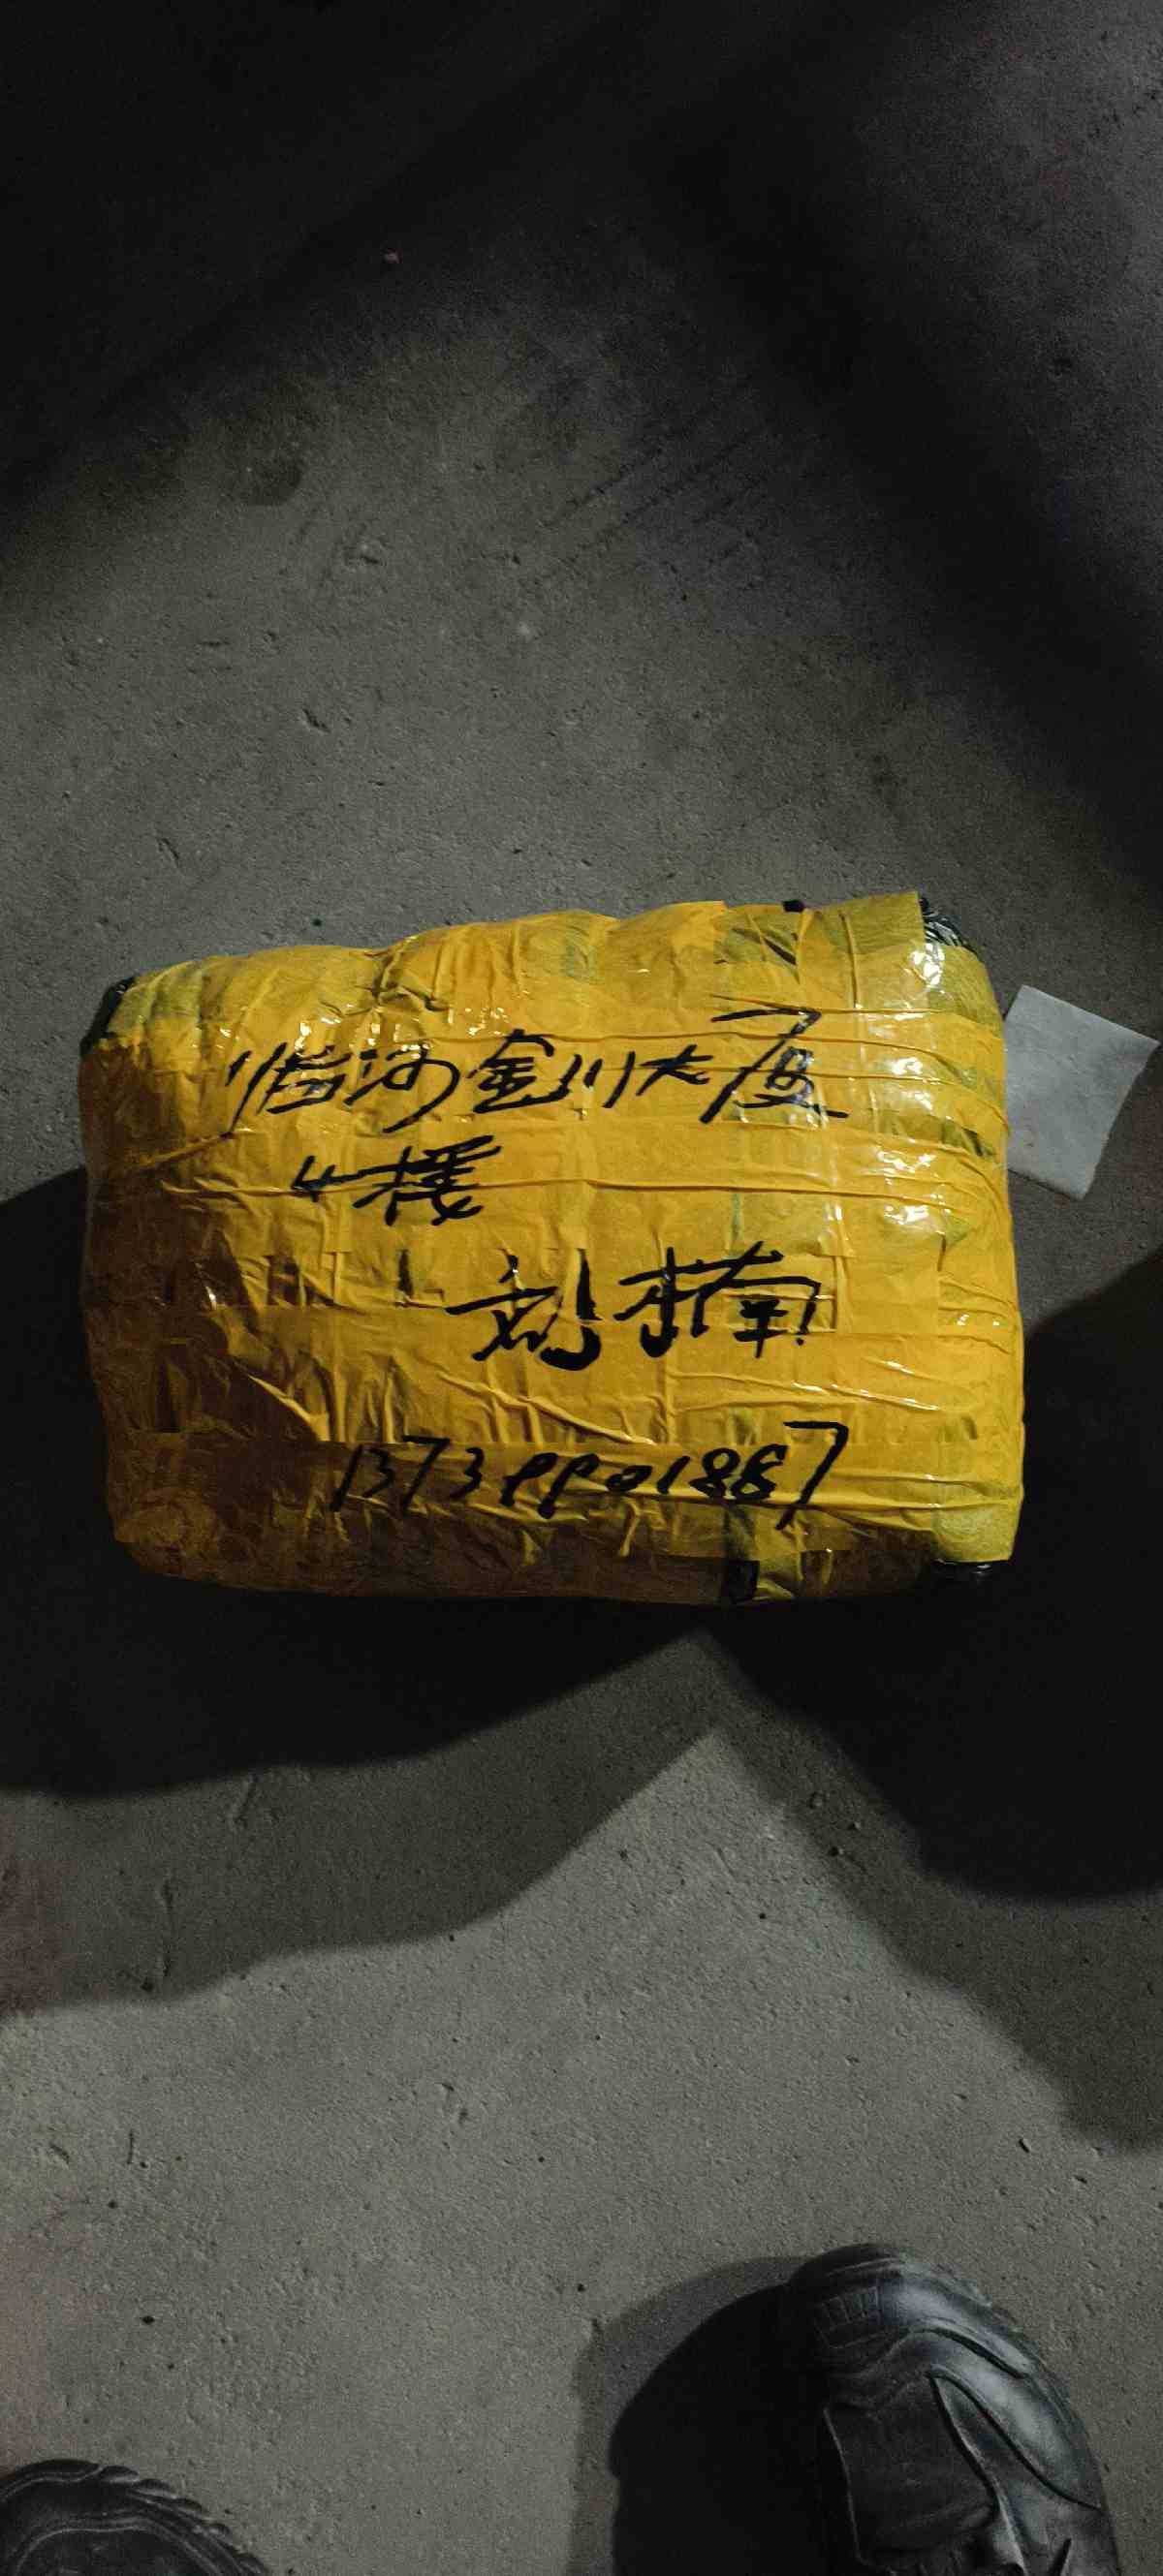 临河金川大厦
4楼
刘楠
13739901887